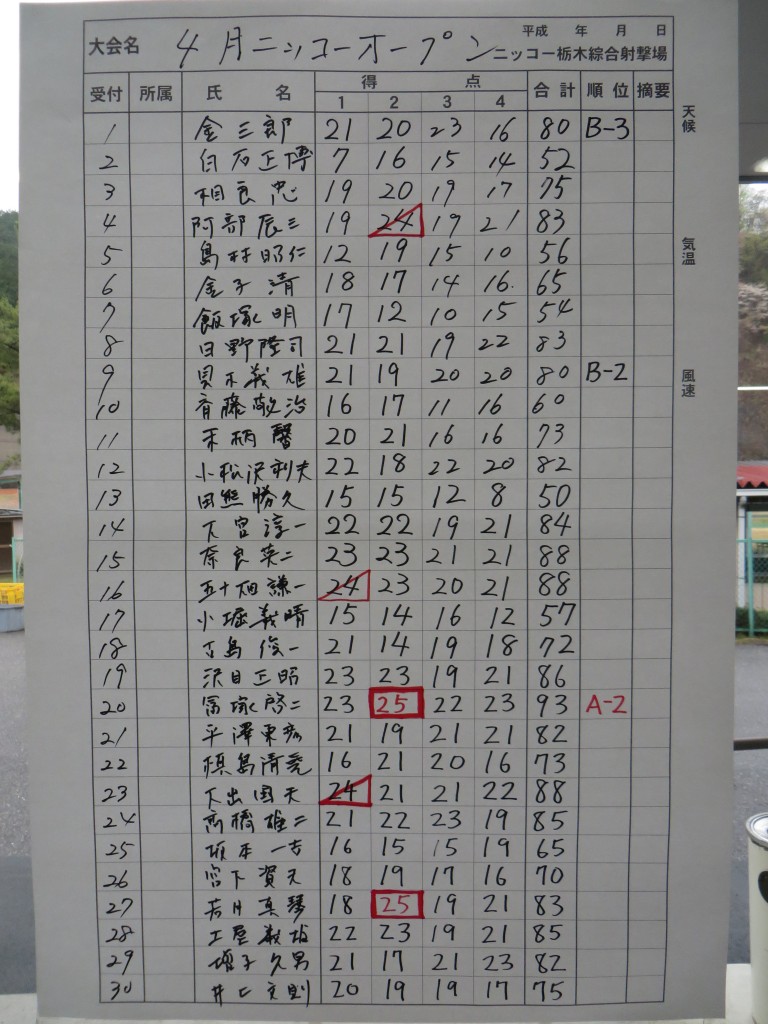 平成 年 月 日
大会名 4月ニッコーオープン ニッコー栃木綜合射撃場
受付 所属 氏名 得点 合計 順位 摘要
1 2 3 4
天候
気温
風速
1 金三郎 21 20 23 16 80 B-3
2 白石正博 7 16 15 14 52
3 相良忠 19 20 19 17 75
4 阿部辰三 19 24 19 21 83
5 島村昭仁 12 19 15 10 56
6 金子清 18 17 14 16 65
7 飯塚明 17 12 10 15 54
8 日野隆司 21 21 19 22 83
9 貝木義雄 21 19 20 20 80 B-2
10 斉藤敬治 16 17 11 16 60
11 末柄馨 20 21 16 16 73
12 小松沢利夫 22 18 22 20 82
13 田熊勝久 15 15 12 8 50
14 大宮淳一 22 22 19 21 84
15 奈良英二 23 23 21 21 88
16 五十畑謙一 24 23 20 21 88
17 小堀義晴 15 14 16 12 57
18 島俊一 21 14 19 18 72
19 沢目正昭 23 23 19 21 86
20 冨塚啓二 23 25 22 23 93 A-2
21 平澤東彦 21 19 21 21 82
22 島清 16 21 20 16 73
23 大出国夫 24 21 21 22 88
24 高橋雄二 21 22 23 19 85
25 坂本一吉 16 15 15 19 65
26 宮下賀天 18 19 17 16 70
27 若月真琴 18 25 19 21 83
28 土屋 22 23 19 21 85
29 増子久男 21 17 21 23 82
30 井上文則 20 19 19 17 75